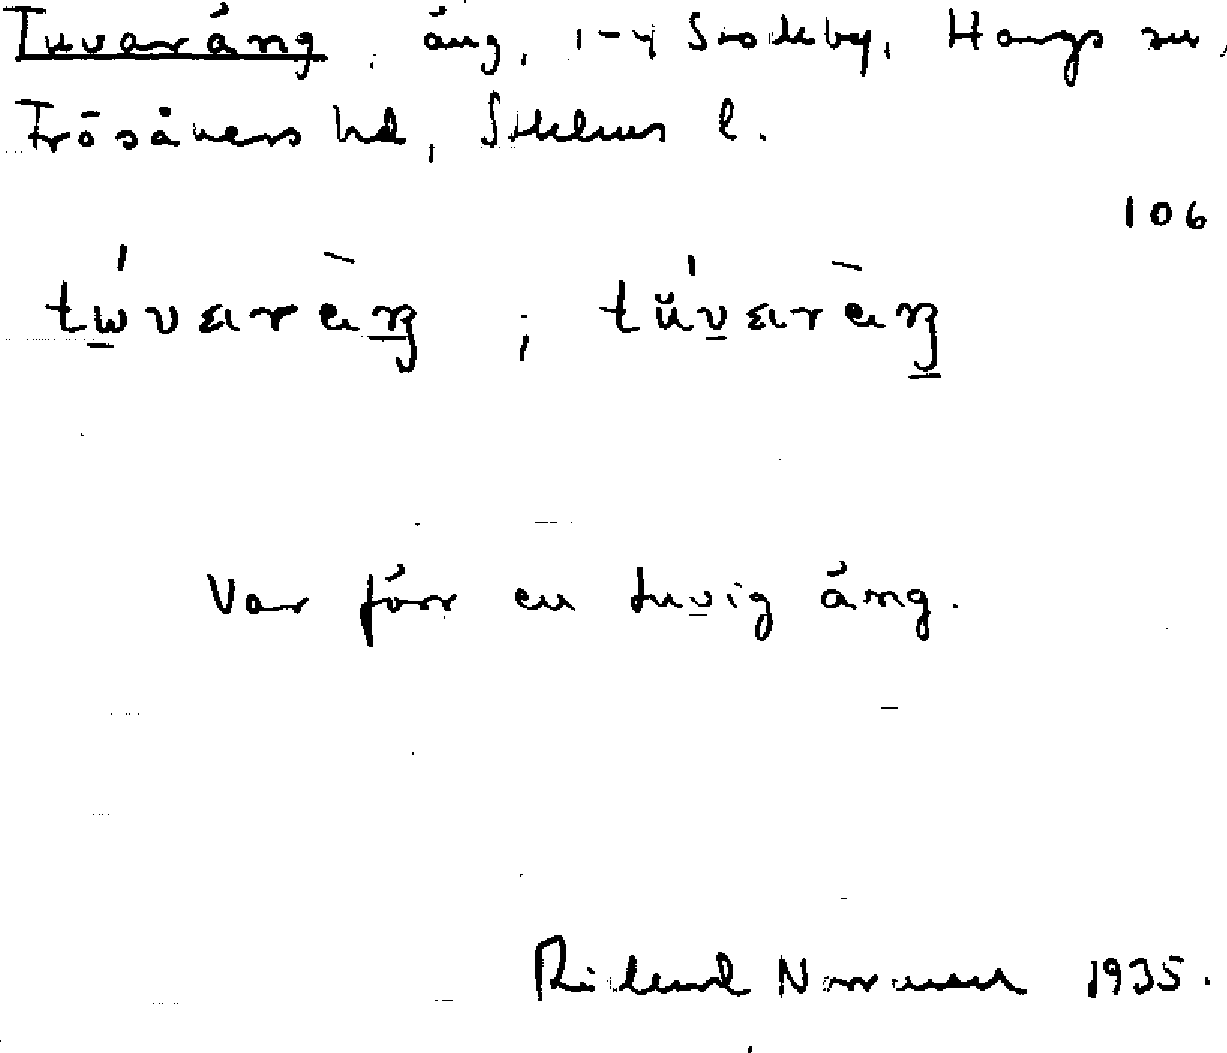 Tuvaräng, äng, 1-4 Stadsby, Haugs sn,
Frösåkers hd, Sthlms l.
106
tu̠varäng ; tŭv̠aräng
Var förr en tuvig äng.
Rickard Norrman 1935.